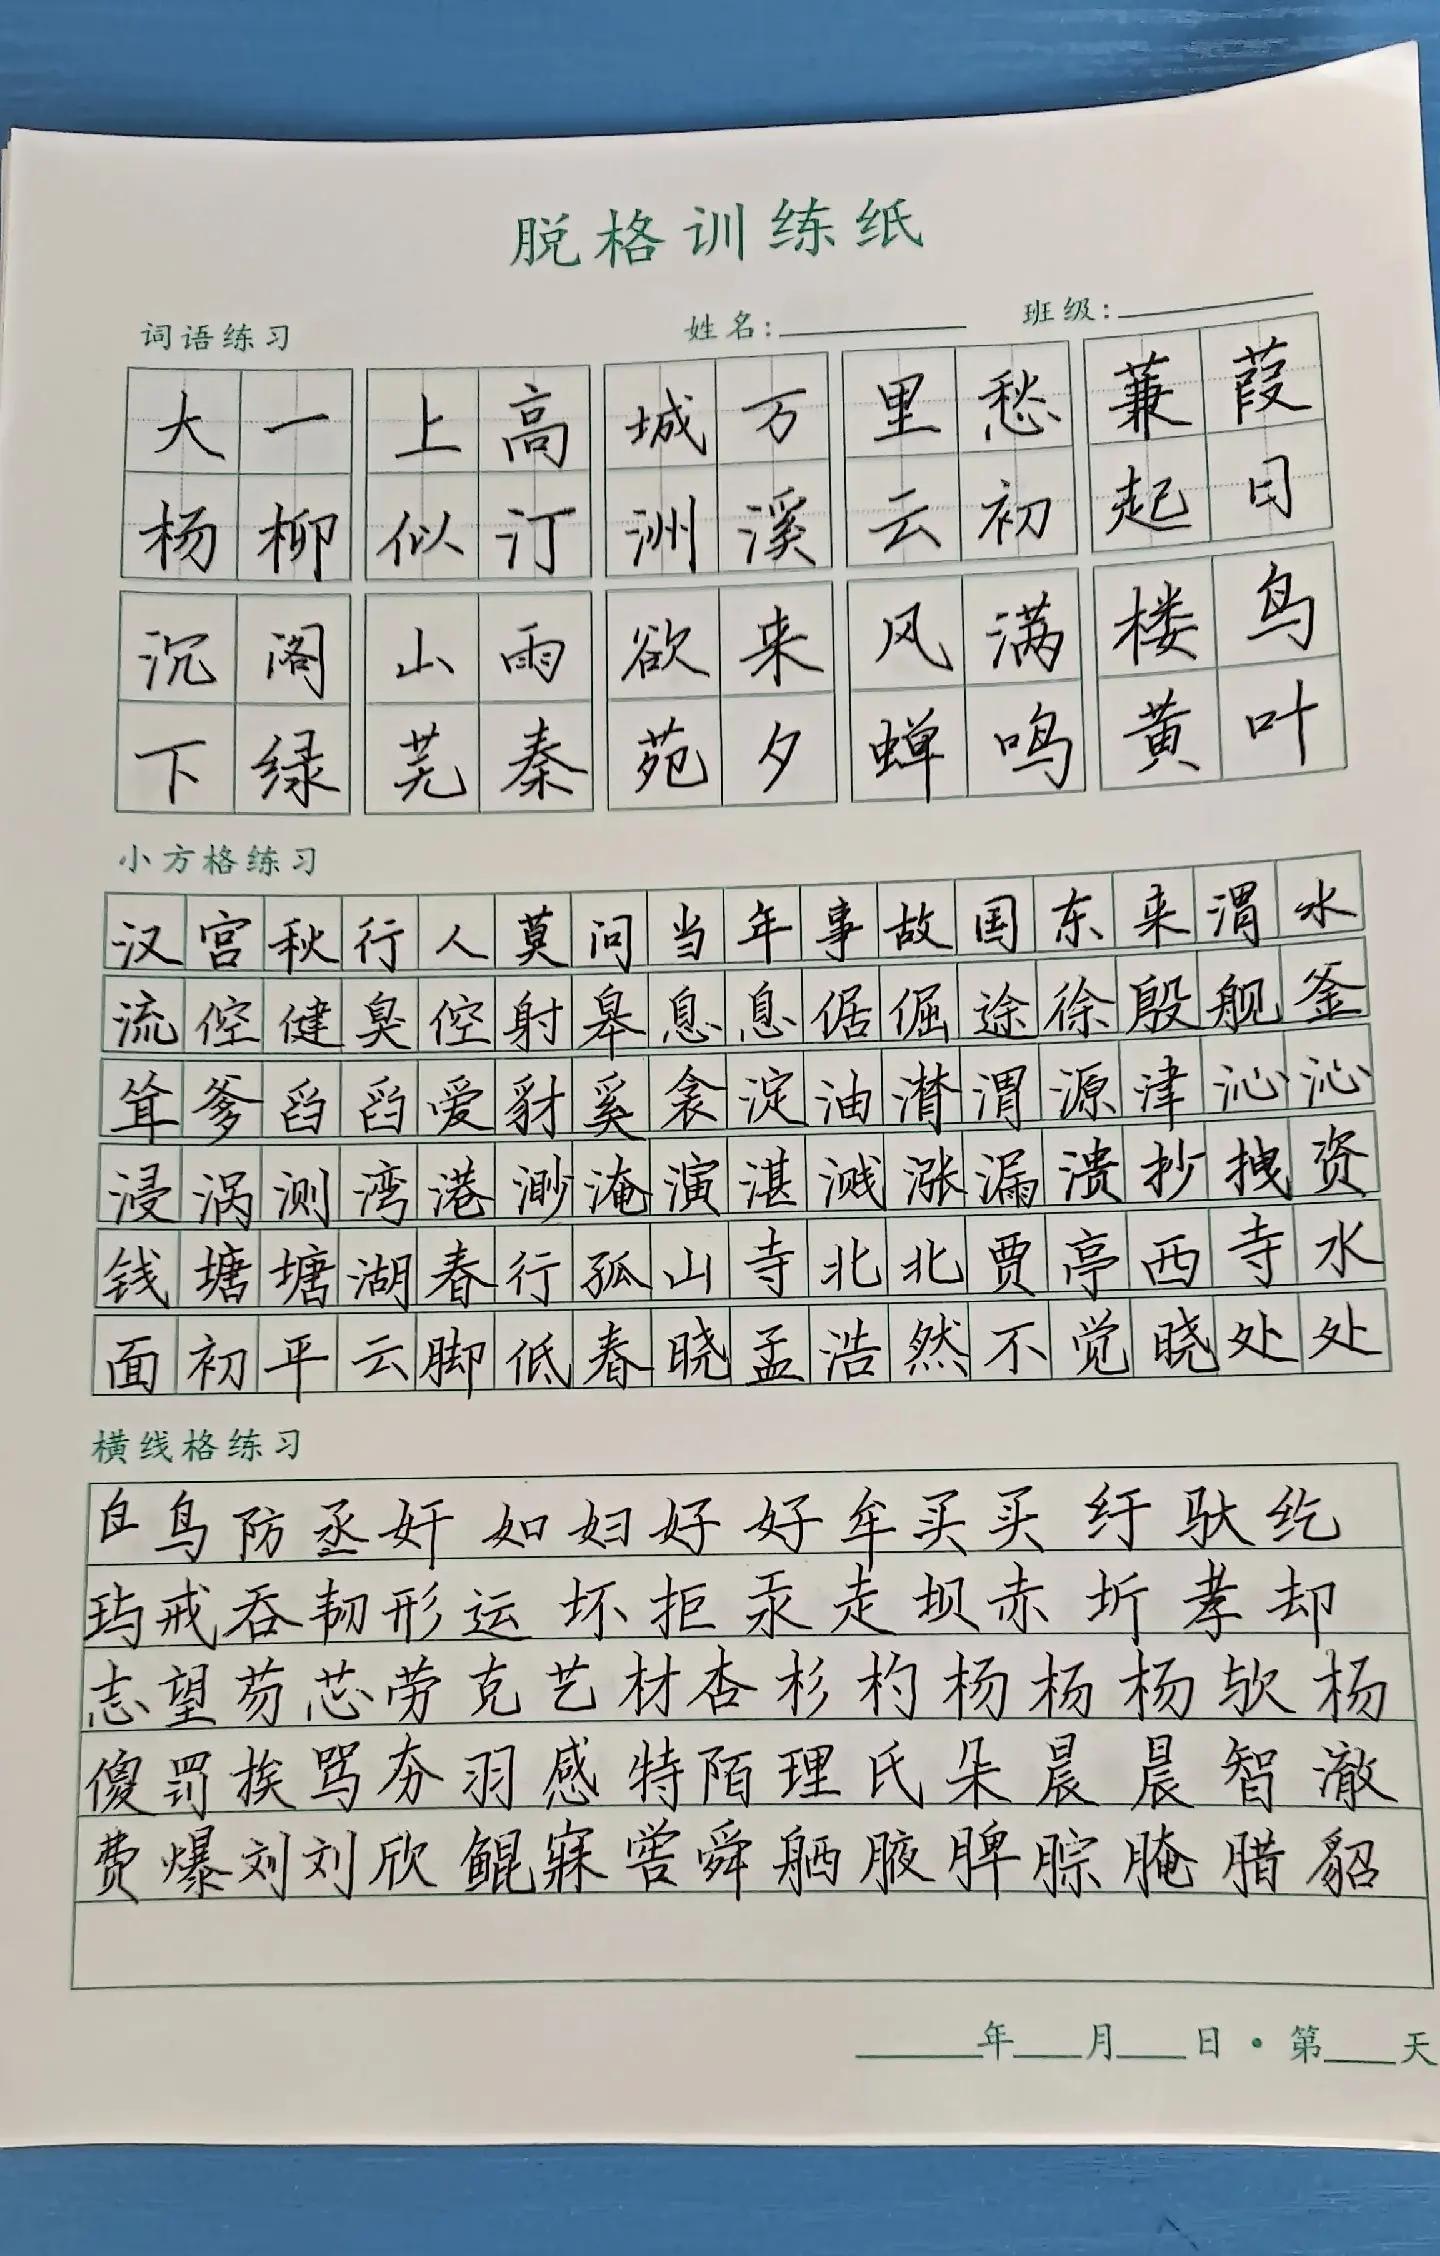 脱格训练纸
词语练习 姓名: 班级:
大一上高城万里愁蒹葭
杨柳似汀洲溪云初起日
沉阁山雨欲来风满楼鸟
下绿芜秦苑夕蝉鸣黄叶
小方格练习
汉宫秋行人莫问当年事故国东来渭水
流倥健臭倥射皋息息倨倔途徐殷舰釜
耸爹舀舀爱豺奚衾淀油潸渭源津沁沁
浸涡测湾港渺淹演湛溅涨漏溃抄拽资
钱塘塘湖春行孤山寺北北贾亭西寺水
面初平云脚低春晓孟浩然不觉晓处处
横线格练习
白鸟防丞奸如妇好好牟买买纡驮纥
玙戒吞韧形运坏拒汞走坝赤圻孝却
志望芴芯劳克艺材杏杉杓杨杨杨欤杨
傻罚挨骂夯羽感特陌理氏朵晨晨智澈
费爆刘刘欣鲲寐喾舜腋脾腙腌腊貂
年 月 日·第 天